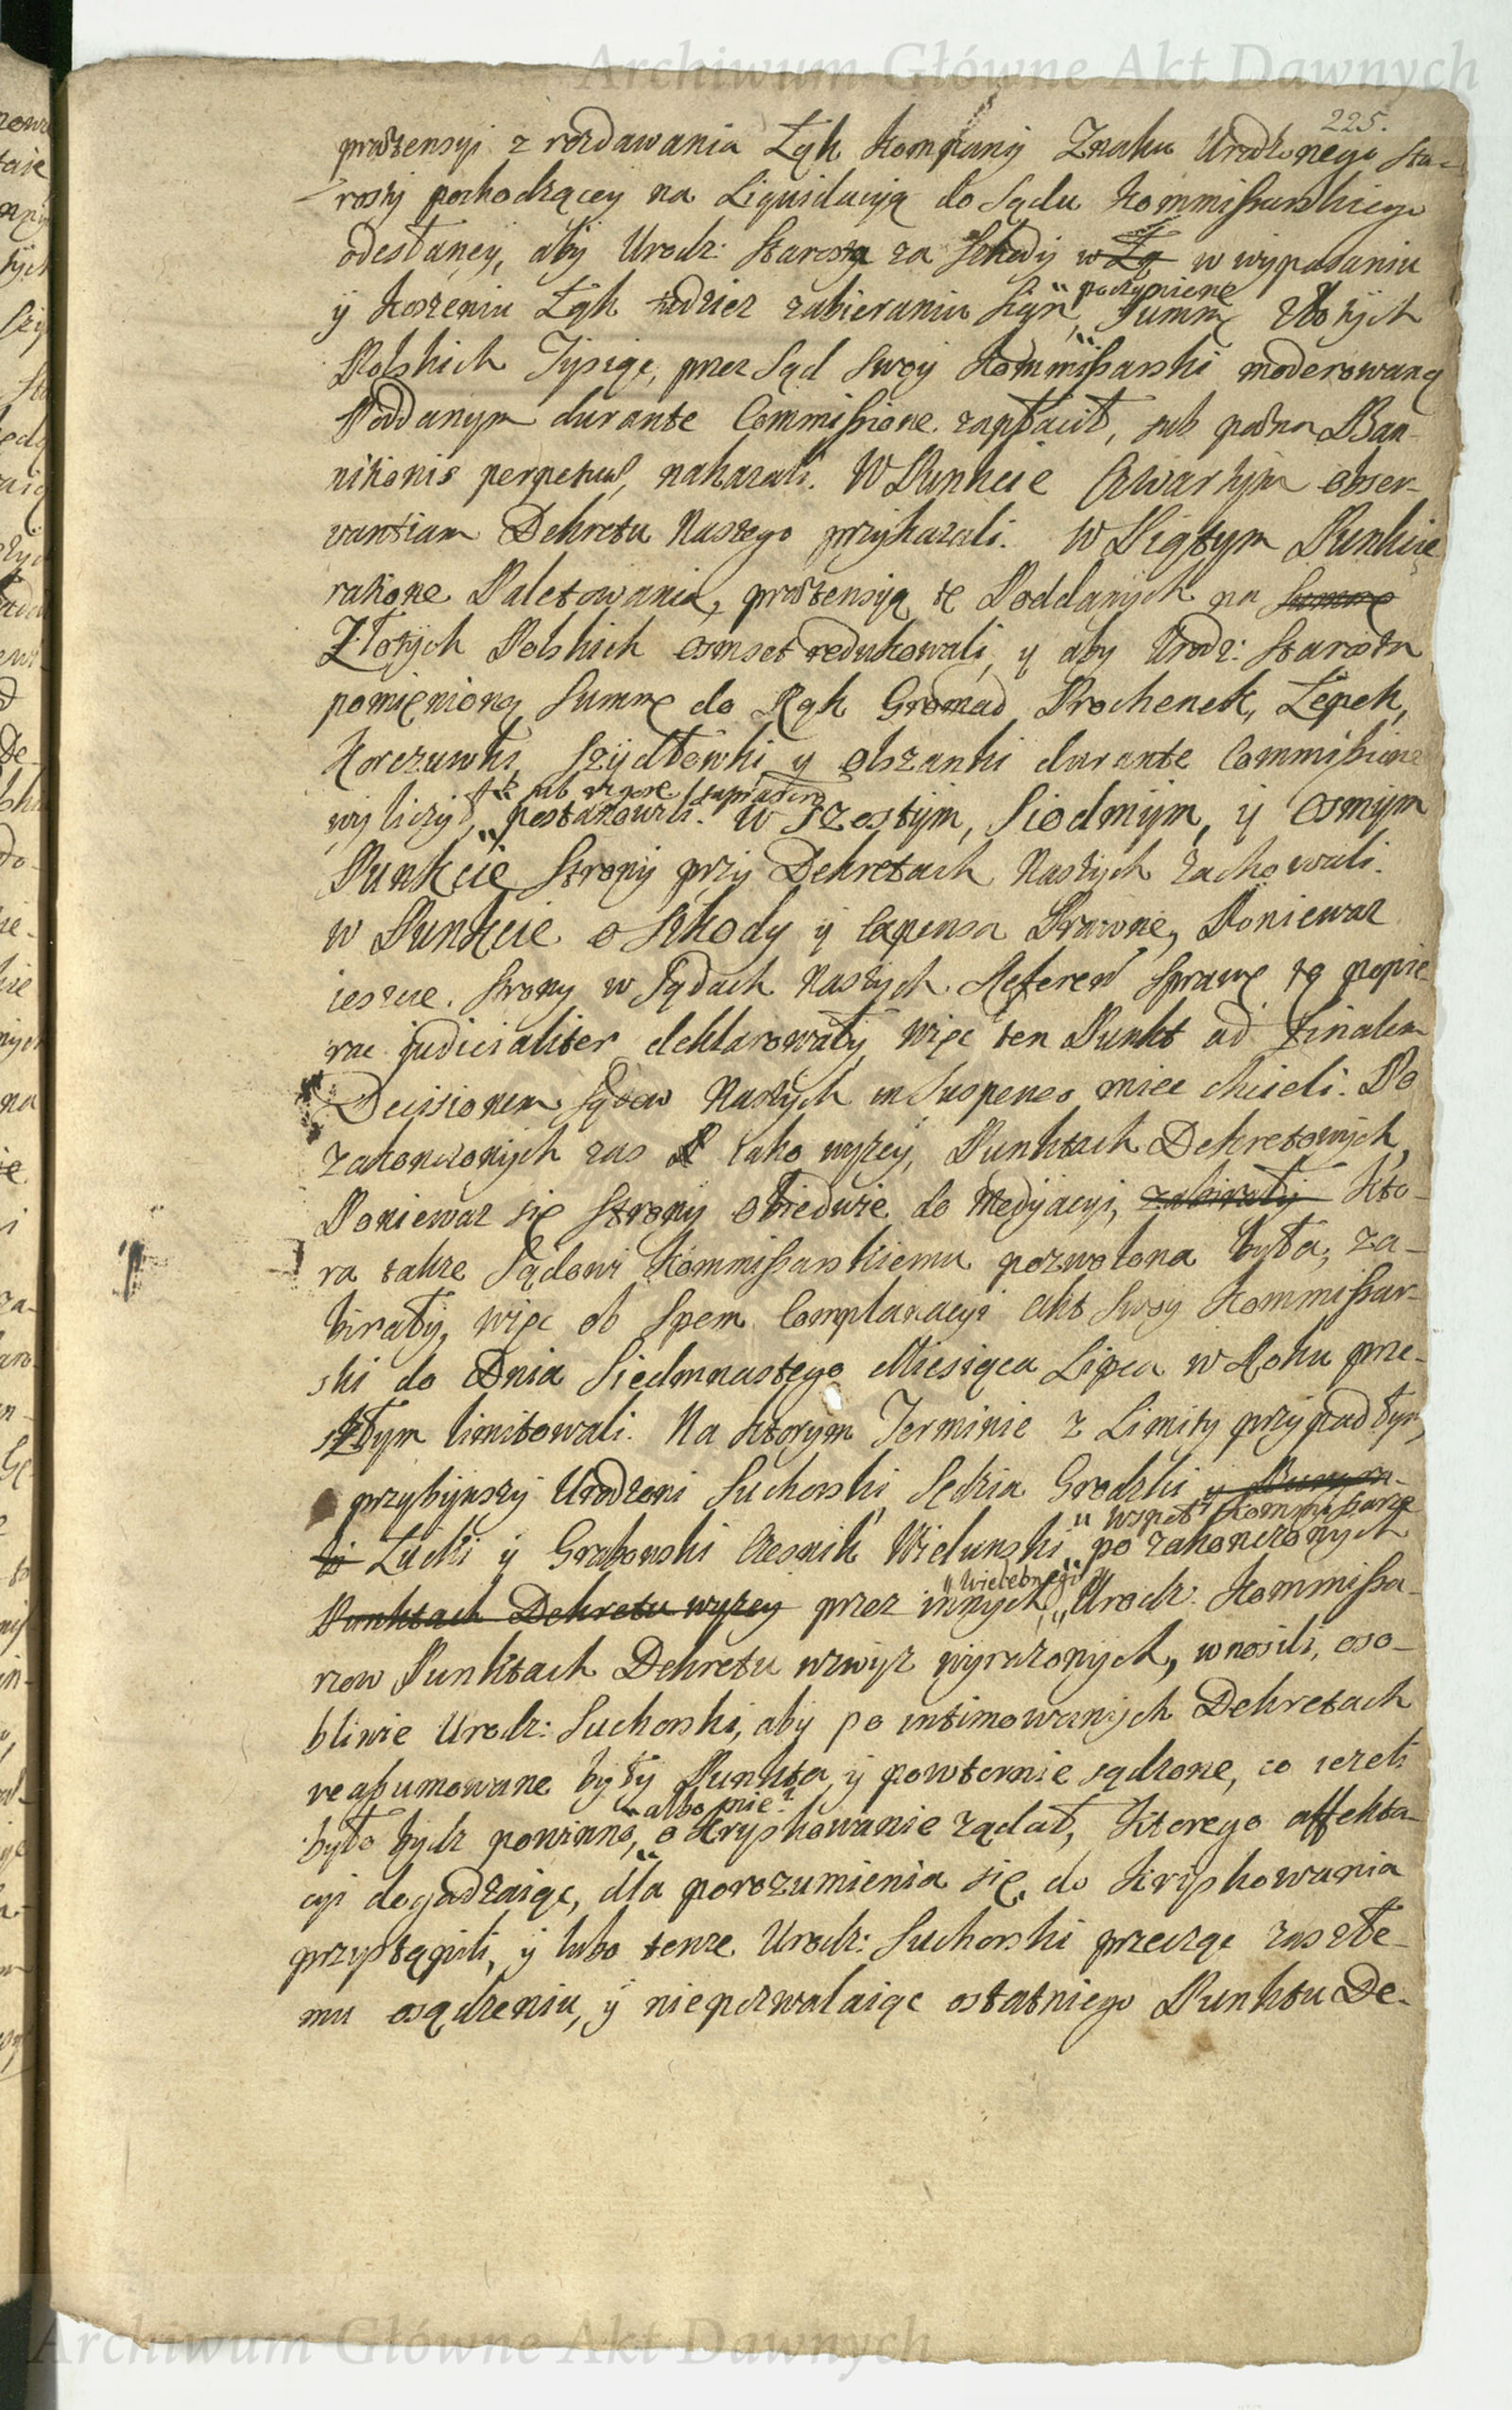 Archiwum Główne Akt Dawnych
225.
pretensyi z rozdawania Łąk Kompanij Znaku Urodzonego Sta-
rosty pochodzącey na Liquidacyą do Sądu Kommissarskiego
odesłaney, aby Urodz: Starosta za Szkody w Łą w wypasaniu
poczynione
y koszeniu Łąk tudziez zabieraniu Sian, Summę Złotych
Polskich Tysiąc, przez Sąd Swoy Kommissarski moderowaną
Poddanym durante Commissione zapłacił, sub pœna Ban-
nitionis perpetuæ, nakazali. W Punkcie Czwartym obser-
vantiam Dekretu Naszego przykazali. W Piątym Punkcie
ratione Paletowania, pretensyą tę Poddanych na Summę
Złotych Polskich osmset redukowali, y aby Urodz: Starosta
pomienioną Summę do Rąk Gromad Prochenek, Łepek,
Korczuwki, Szydłowki y Olszanki durante Commissione
sub rigore supradicto
wyliczył, postanowili. W Szostym, Siodmym, y Osmym
Punkcie Strony przy Dekretach Naszych zachowali.
w Punkcie o Szkody y Expensa Prawne, Poniewaz
ieszcze Strony w Sądach Naszych Referen Sprawę tę popie-
rac judicialiter deklarowały, więc ten Punkt ad finalem
Decisionem Sądow Naszych in Suspenso miec chcieli. Po
zakonczonych zas iako wyzey, Punktach Dekretowych,
Poniewaz się Strony obiedwie do Medyacyi, zabierały Kto-
ra takze Sądowi Kommissarskiemu pozwolona była, za-
bierały, więc ob Spem Complanacyi Akt Swoy Kommissar-
ski do Dnia Siedmnastego Miesiąca Lipca w Roku prze-
szłym limitowali. Na ktorym Terminie z Limity przypadłym,
przybywszy Urodzeni Suchorski Sędzia Grodzki y
wspoł Kommissarze
Łucki y Grabowski Czesnik Wielunski, po zakonczonych
Wielebnego
Punktach Dekretu wyzey przez innych, Urodz: Kommissa-
rzow Punktach Dekretu wzwyz wyrazonych, wnosili, oso-
bliwie Urodz: Suchorski, aby po intimowanych Dekretach
reassumowane były Punkta, y powtornie sądzone, co iezeli
albo nie?
było bydz powinno, o Kryskowanie ządał, Ktorego affekta-
cyi dogadzaiąc, dla porozumienia się, do Kryskowania
przystąpili, y lubo tenze Urodz: Suchorski przecząc zaszłe-
mu osądzeniu, y niepozwalaiąc ostatniego Punktu De-
Archiwum Główne Akt Dawnych